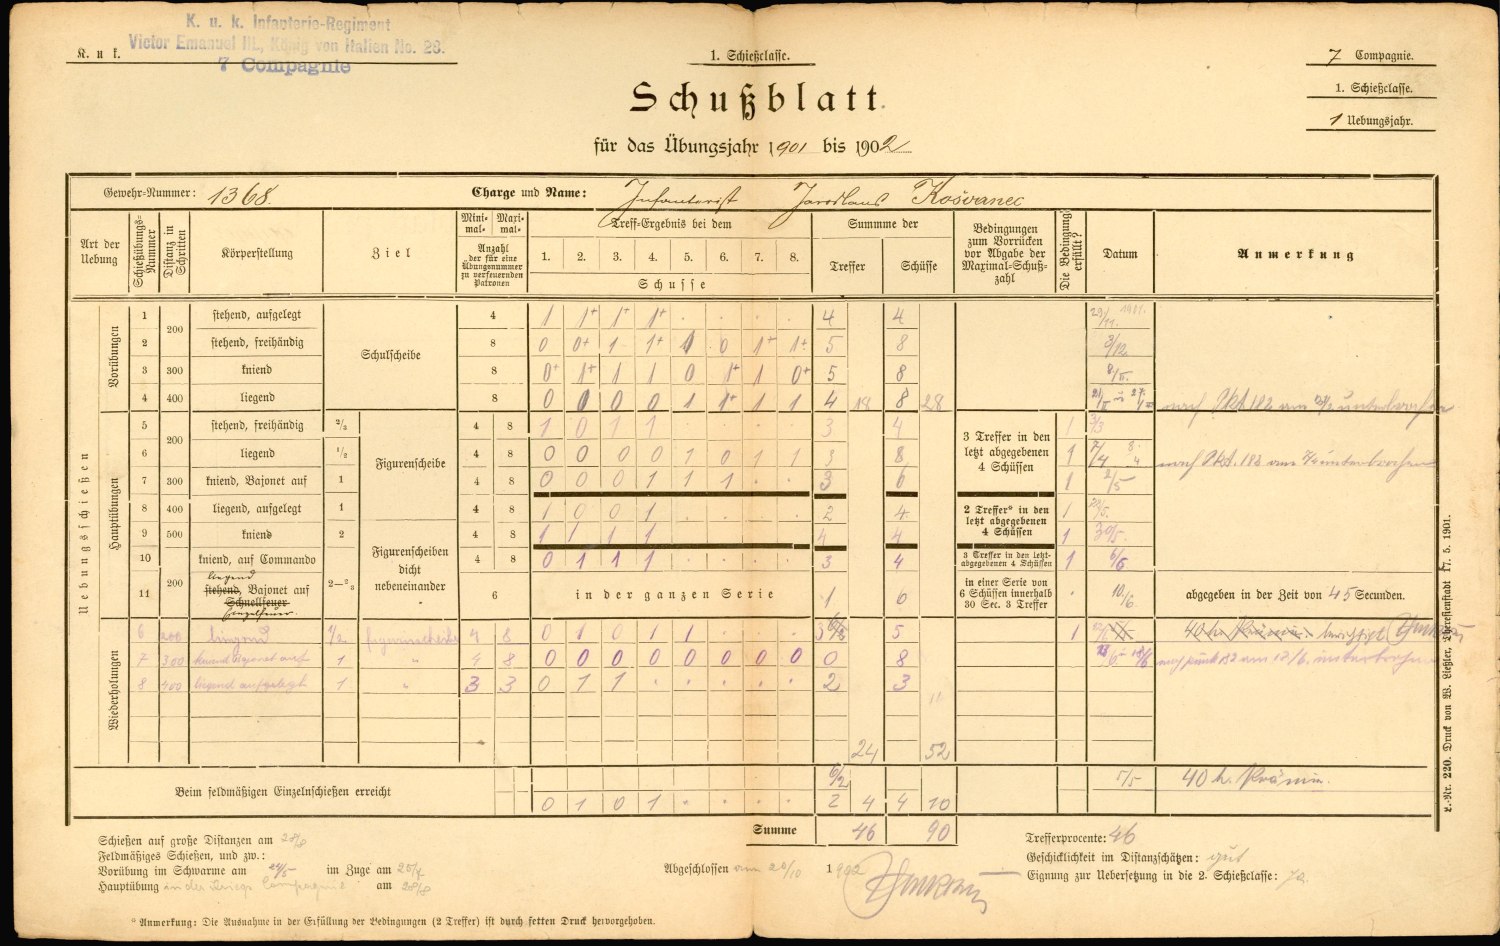 K. u. k. Infanterie-Regiment
Victor Emanuel III., König von Italien No. 28.
7 Compagnie
K. u. k.
1. Schießclasse.
7 Compagnie.
1. Schießclasse.
1 Uebungsjahr.
Schußblatt
für das Übungsjahr 1901 bis 1902
Gewehr-Nummer: 1368. Charge und Name: Infanterist Jaroslaus Košvanec
Art der Uebung
Schießübungs-Nummer
Distanz in Schritten
Körperstellung
Ziel
Mini-mal- Maxi-mal-
Anzahl der für eine Übungsnummer zu verfeuernden Patronen
Treff-Ergebnis bei dem
1. 2. 3. 4. 5. 6. 7. 8.
Schusse
Summme der
Treffer Schüsse
Bedingungen zum Vorrücken vor Abgabe der Maximal-Schuß-zahl
Die Bedingung erfüllt?
Datum
Anmerkung
Uebungsschießen
Vorübungen
1 200 stehend, aufgelegt Schulscheibe 4 1 1+ 1+ 1+ . . . . 4 4 29/11. 1901.
2 stehend, freihändig 8 0 0+ 1 1+ 1 0 1+ 1+ 5 8 3/12
3 300 kniend 8 0+ 1+ 1 1 0 1+ 1 0+ 5 8 8/II.
4 400 liegend 8 0 0 0 0 1 1+ 1 1 4 18 8 28 nach Pkt 182 am unterbrochen
Hauptübungen
5 200 stehend, freihändig 2/3 Figurenscheibe 4 8 1 0 1 1 . . . . 3 4 3 Treffer in den letzt abgegebenen 4 Schüssen 1 3/3
6 liegend 1/2 4 8 0 0 0 0 1 0 1 1 3 8 1 7/4 8/4 nach Pkt. 182 am 7/4 unterbrochen
7 300 kniend, Bajonet auf 1 4 8 0 0 0 1 1 1 . . 3 6 1 2/5
8 400 liegend, aufgelegt 1 4 8 1 0 0 1 . . . . 2 4 2 Treffer* in den letzt abgegebenen 4 Schüssen 1
9 500 kniend 2 Figurenscheiben dicht nebeneinander 4 8 1 1 1 1 4 4 1 30/5.
10 200 kniend, auf Commando 4 8 0 1 1 1 . . . . 3 4 3 Treffer in den letzt-abgegebenen 4 Schüssen 1 6/6
11 liegend stehend, Bajonet auf Schnellfeuer Einzelfeuer 2—2/3 6 in der ganzen Serie 1 6 in einer Serie von 6 Schüssen innerhalb 30 Sec. 3 Treffer . 10/6 abgegeben in der Zeit von 45 Secunden.
Wiederholungen
6 200 liegend 1/2 Figurenscheibe 4 8 0 1 0 1 1 . . . 3 5 1 40 h. Prämie. berichtigt
7 300 kniend Bajonet auf 1 " 4 8 0 0 0 0 0 0 0 0 0 8 nach punkt 182 am 12/6. unterbrochen
8 400 liegend aufgelegt 1 " 3 3 0 1 1 . . . . . 2 3
11
24 52
Beim feldmäßigen Einzelnschießen erreicht 0 1 0 1 . . . . 6/2 2 4 4 10 5/5 40 h. Prämie.
Summe 46 90
Schießen auf große Distanzen am 28/8
Feldmäßiges Schießen, und zw.:
Vorübung im Schwarme am 24/5 im Zuge am 25/7
Hauptübung in der Kriegs Compagnie am 28/8
Abgeschlossen am 20/10 1902
Trefferprocente: 46
Geschicklichkeit im Distanzschätzen: gut
Eignung zur Uebersetzung in die 2. Schießclasse: ja.
* Anmerkung: Die Ausnahme in der Erfüllung der Bedingungen (2 Treffer) ist durch fetten Druck hervorgehoben.
L.-Nr. 220. Druck von W. Ließler, Theresienstadt 17. 5. 1901.